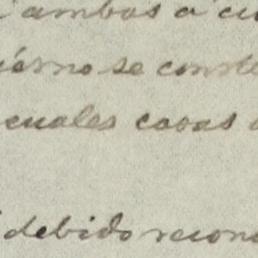 ambas a cu
ierno se conste
cuales cosas a
debido recono